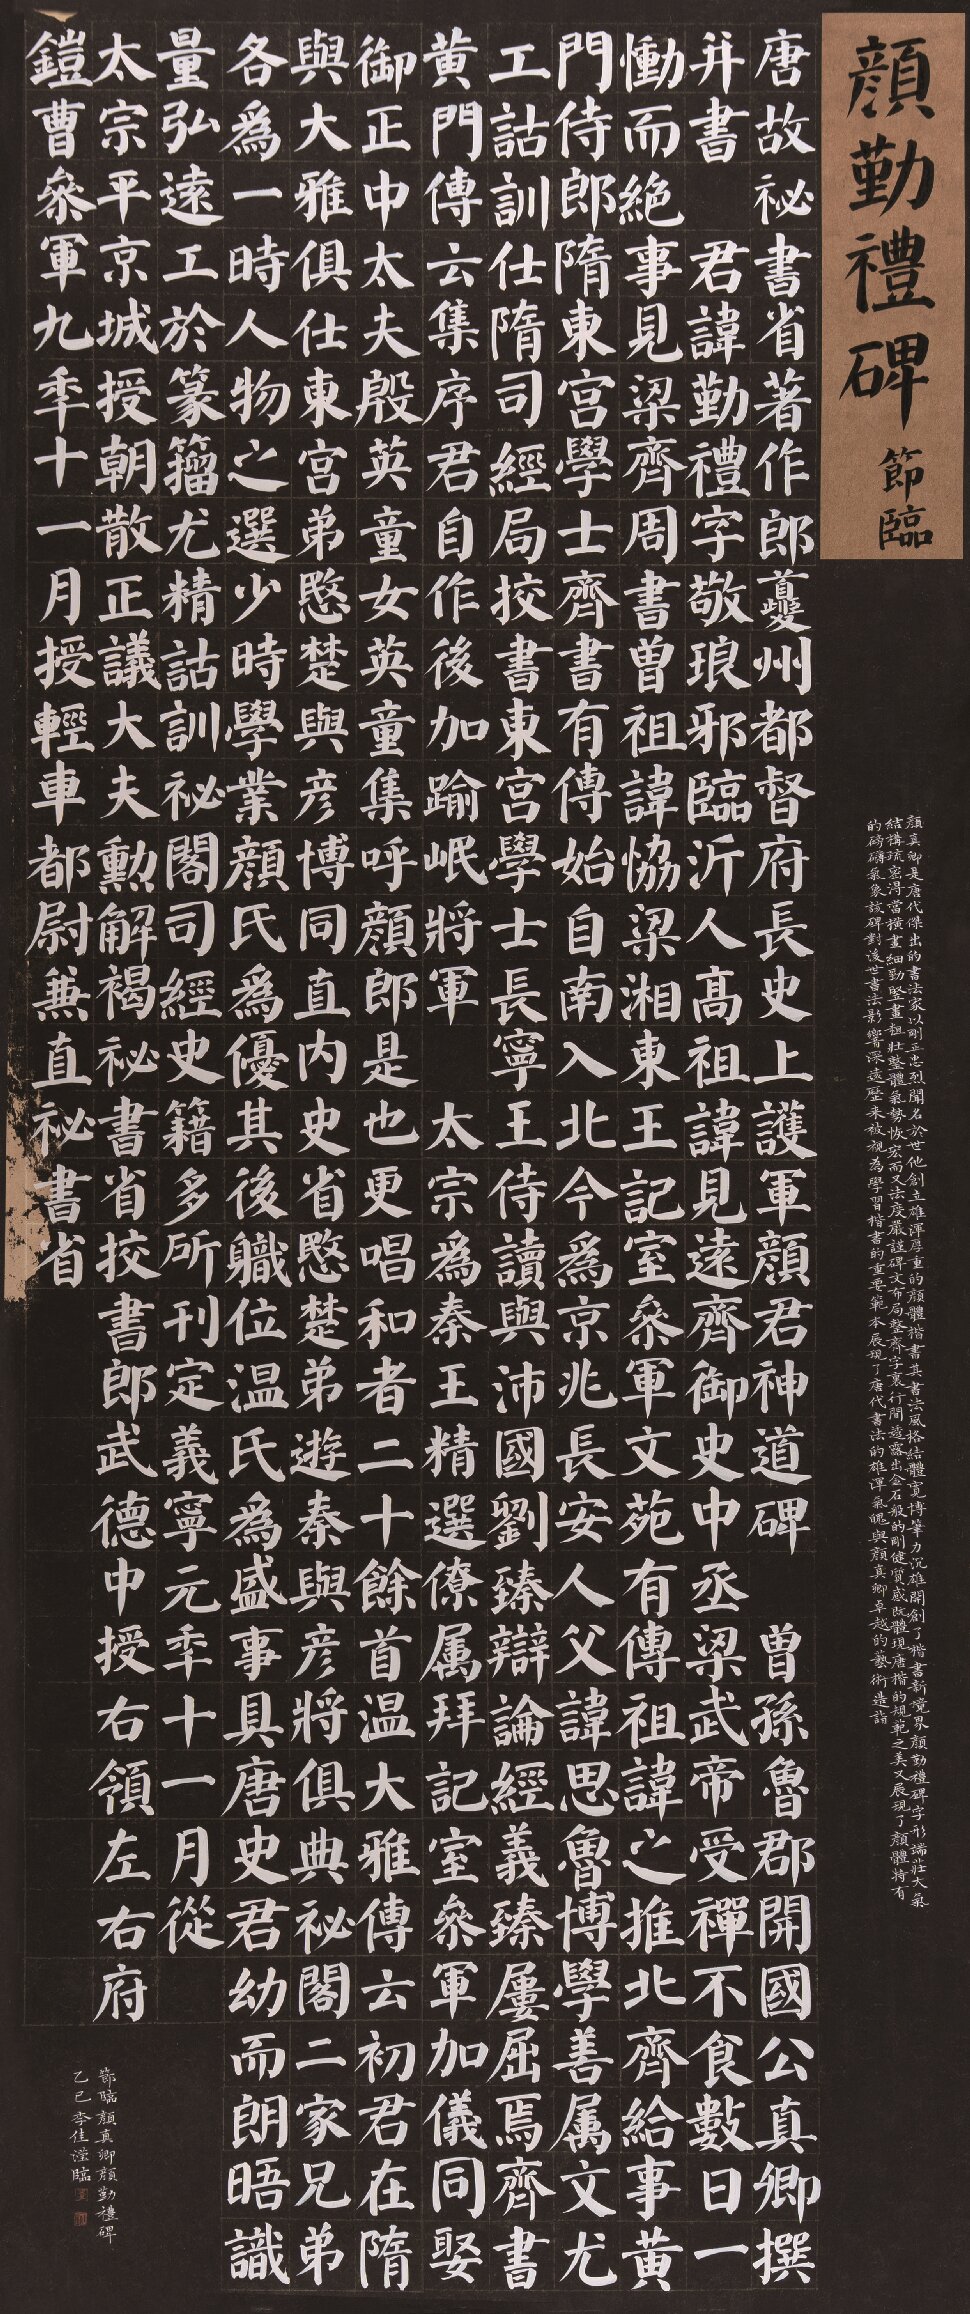 顏勤禮碑
節臨
顏真卿是唐代傑出的書法家以剛正忠烈聞名於世他創立雄渾厚重的顏體楷書其書法風格結體寬博筆力沉雄開創了楷書新境界顏勤禮碑字形端莊大氣
結構疏密得當橫畫細勁豎畫粗壯整體氣勢恢宏而又法度嚴謹碑文布局整齊字裏行間透露出金石般的剛健質感既體現唐楷的規範之美又展現了顏體特有
的磅礴氣象該碑對後世書法影響深遠歷來被視為學習楷書的重要範本展現了唐代書法的雄渾氣魄與顏真卿卓越的藝術造詣
唐故祕書省著作郎夔州都督府長史上護軍顏君神道碑 曾孫魯郡開國公真卿撰
并書 君諱勤禮字敬琅邪臨沂人高祖諱見遠齊御史中丞梁武帝受禪不食數日一
慟而絕事見梁齊周書曾祖諱協梁湘東王記室叅軍文苑有傳祖諱之推北齊給事黃
門侍郎隋東宮學士齊書有傳始自南入北今為京兆長安人父諱思魯博學善属文尤
工詁訓仕隋司經局挍書東宮學士長寧王侍讀與沛國劉臻辯論經義臻屢屈焉齊書
黃門傳云集序君自作後加踰岷將軍 太宗為秦王精選僚属拜記室叅軍加儀同娶
御正中太夫殷英童女英童集呼顏郎是也更唱和者二十餘首温大雅傳云初君在隋
與大雅俱仕東宮弟愍楚與彥博同直内史省愍楚弟遊秦與彥將俱典祕閣二家兄弟
各為一時人物之選少時學業顏氏為優其後職位温氏為盛事具唐史君幼而朗晤識
量弘遠工於篆籀尤精詁訓祕閣司經史籍多所刊定義寧元年十一月從
太宗平京城授朝散正議大夫勳解褐祕書省挍書郎武德中授右領左右府
鎧曹叅軍九年十一月授輕車都尉兼直祕書省
節臨顏真卿顏勤禮碑
乙巳李佳瀅臨